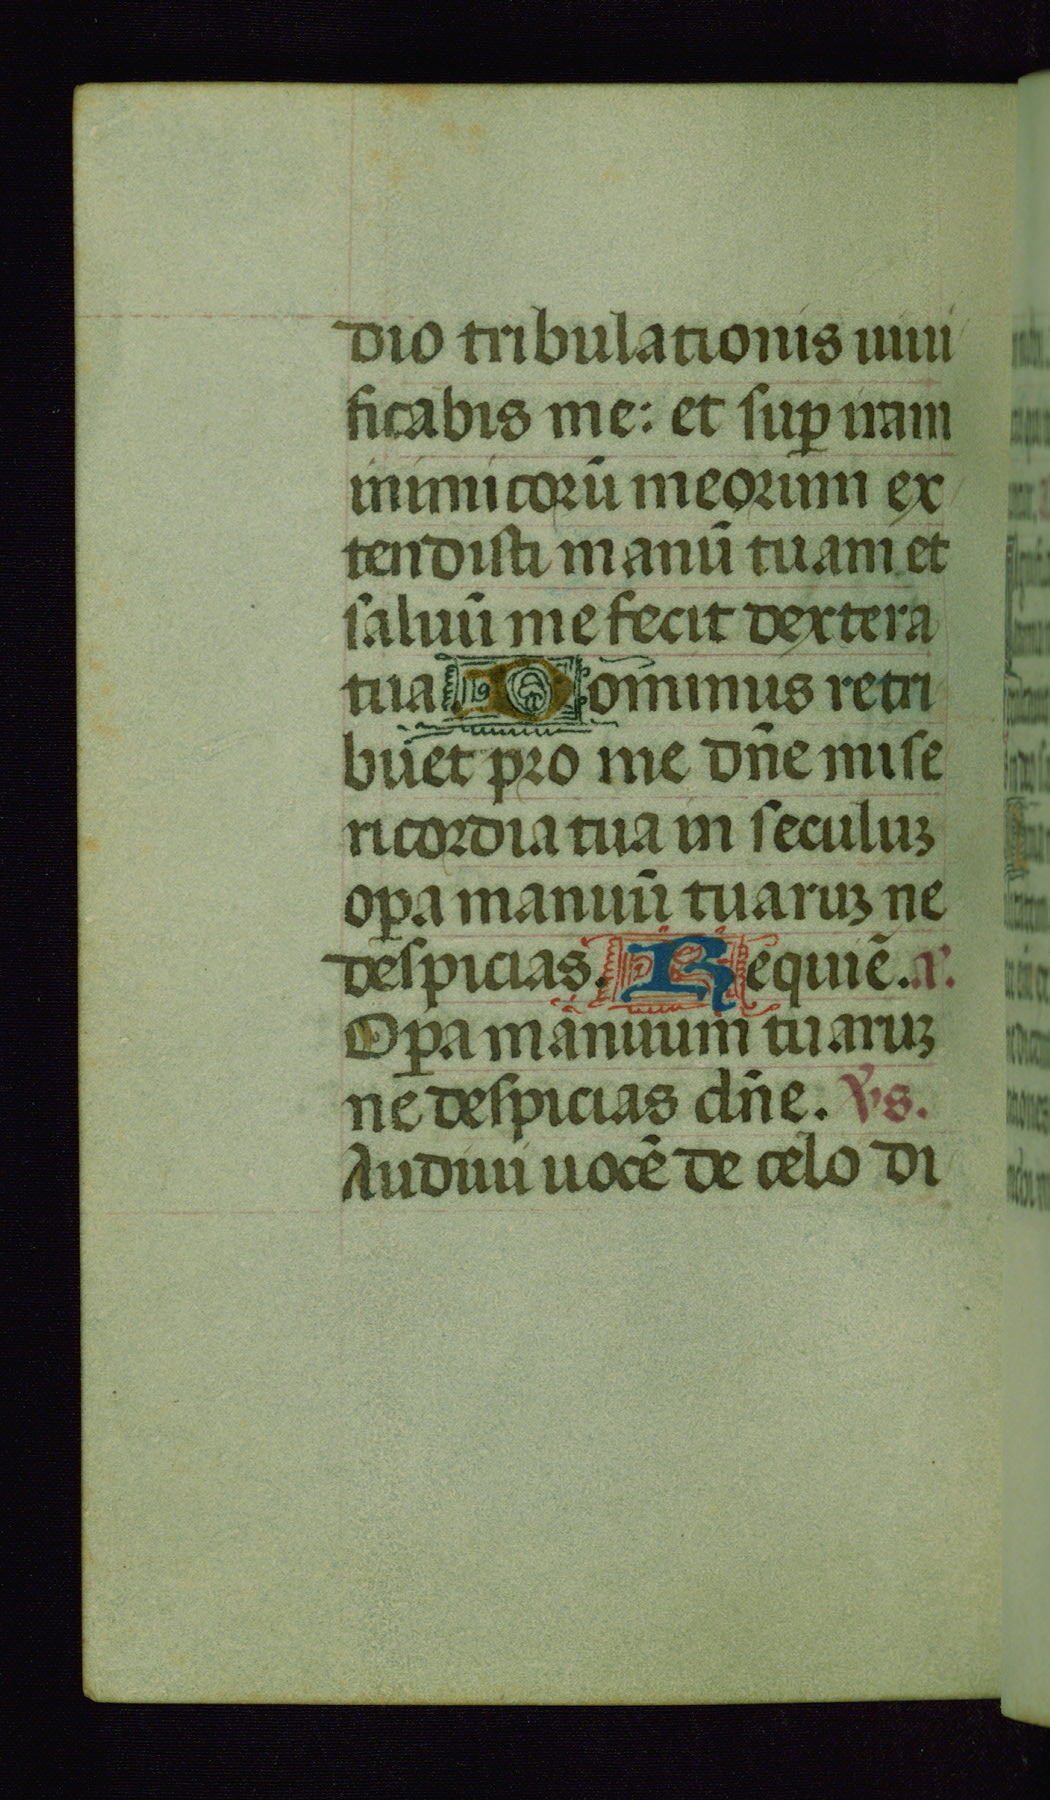 dio tribulationis uiui
ficabis me: et suꝑ iram
inimicorū meorum ex
tendisti manū tuam et
saluū me fecit dextera
tua. Dominus retri
buet pro me dn̄e mise
ricordia tua in seculuꝫ
oꝑa manuū tuaruꝫ ne
despicias. Requiē. A.
Oꝑa manuum tuaruꝫ
ne despicias dn̄e. Vs.
Audiui uocē de celo di